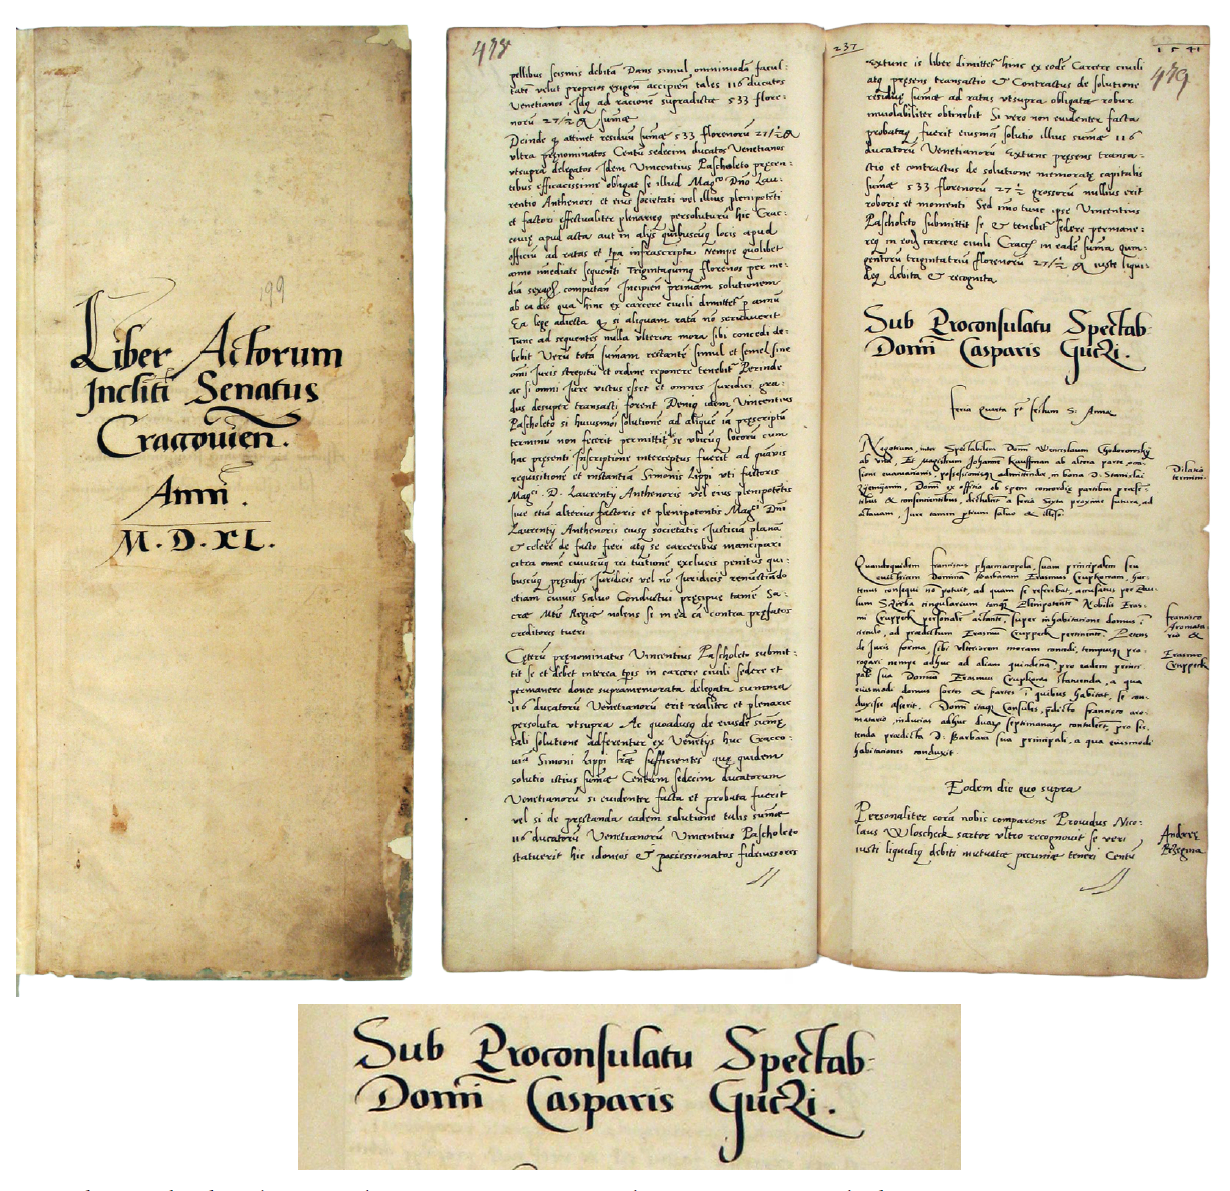 199
Liber Actorum
Incliti Senatus
Cracovien̄.
Anni.
M.D.XL.
478
pellibus scismis debita Dans simul omnimodā facul-
tatē velut proprios exigen accipien tales 116 ducatos
Venetianos Idq ad racionē supradictæ 533 flore-
norū 27/½ gr̄ sumæ
Deinde q attinet residuū sumæ 533 florenorū 27/½ gr̄
vltra p̄nominatos Centū sedecim ducatos Venetianos
vtsupra delegatos Idem Vincentius Pascholeto pręsen-
tibus efficacissime obligat se illud Mag.co Dn̄o Lau-
rentio Anthenori et eius societati vel illius plenipotēti
et factori effectualiter plenarieq persoluturū hic Crac-
couię apud acta aut in alys quibuscūq locis apud
officiū ad ratas et tp̄a infrascripta Nempe quolibet
anno imediate sequenti Trigintaquinq florenos per me-
diā sexagē computan Incipien primam solutionem
ab ea die qua hinc ex carcere ciuili dimittet p̄ annū
Ea lege adiecta q si aliquam ratā nō seruauerit
Tunc ad sequentes nulla vlterior mora sibi concedi de-
bebit Verū totā sumam restantē simul et semel sine
om̄i Iuris strepitu et ordine reponere tenebit Perinde
ac si omni Iure victus esset et omnes Iuridici gra-
dus desuper transacti forent Deniq idem Vincentius
Pascholeto si huiusmōi solutionē ad aliquē iā pręscriptū
terminū non fecerit permittit se vbicūq locorū cum
hac pręsenti Inscriptione interceptus fuerit ad quāuis
requisitionē et instantiā Simonis Lippi vti factoris
Mag.ci D. Laurenty Anthenoris vel eius plenipotētis
siue etiā alterius factoris et plenipotentis Mag.ci Dn̄i
Laurentij Anthenoris eiusq societatis Iusticiā planā
& celerē de facto fieri atq se carceribus mancipari
citra omnē cuiuscūq rei tuitione exclusis penitus qui-
buscūq pręsidys Iuridicis vel nō Iuridicis renūctiādo
etiam cuiuis Saluo Conductui pręcipue tamē Sa-
cræ Mtis Regiæ nolens se in ea re contra pręfatos
creditores tueri
Cęterū pręnominatus Vincentius Pascholeto submit-
tit se et debet interea tp̄is in carcere ciuili sedere et
permanere donec supramemorata delegata summa
116 ducatorū Venetianorū erit realiter et plenarie
persoluta vtsupra Ac quoadusq de eiusdē sumę
tali solutione adferentur ex Venetys huc Cracco-
uiā Simoni Lippi l̄ræ sufficientes quę quidem
solutio istius sumæ Centum sedecim ducatorum
Venetianorū si euidenter facta et probata fuerit
vel si de pręstanda eadem solutione talis sumæ
116 ducatorū Venetianorū Vincentius Pascholeto
statuerit hic idoneos & possessionatos fideiussores
237
1541
479
Extunc is liber dimittet hinc ex eodē Carcere ciuili
atq pręsens transactio & Contractus de solutione
residuę sumæ ad ratas vtsupra obligatæ robur
inuiolabiliter obtinebit Si vero non euidenter facta
probataq fuerit eiusmōi solutio illius sumæ 116
ducatorū Venetianorū Extunc pręsens transa-
ctio et contractus de solutione memoratæ capitalis
sumæ 533 florenorū 27 ½ grossorū nullius erit
roboris et momenti Sed imo tunc ipse Vincentius
Pascholeto submittit se & tenebit sedere permane-
req in eodē carcere ciuili Cracō in eadē suma quin-
gentorū trigintatriū florenorū 27/½ gr̄ iuste liqui-
deq debita & recognita
Sub Proconsulatu Spectab-
Domi Casparis Guczi.
feria Quarta p̄ festum S: Annæ
Negotium inter Spectabilem Domī Wenceslaum Chodorowsky
ab vna, Et Magistrum Johannē Kauffman ab altera parte
Dilatio
termini
Quandoquidem franciscus pharmacopola, suam principalem seu
Dominā Barbaram Erasmus Cruplkocam, hac-
tenus consequi nō potuit, ad quam se referebat, accusatus per Pau-
lum Skorka
mi Cruppek personalr̄ actante, super inhabitatione domus
ad prædictum Erasmū Cruppek pertinent. Petens
de Iuris forma, sibi vlteriorem moram concedi, tempusq pro-
rogari nempe adhuc ad aliam quindenā pro eadem princi-
pali sua Domina
eiusmodi domus sortem & partes ī quibus habitat, se con-
duxisse asserit. Domī itaq Consules, p̄dicto francisco aro-
matario, inducias adhuc duaȝ septimanaȝ contulerūt, pro sis-
tenda prædicta D: Barbara sua principali, a qua eiusmodi
habitationes conduxit
francisco
Aromata-
rio &
Erasmo
Cruppek
Eodem die quo supra
Personaliter corā nobis comparens Prouidus Nico-
laus Wloscheck sartor vltro recognouit se veri
iusti liquidiq debiti mutuatæ pecuniæ teneri Centū
Andreę
Brzegina
Sub Proconsulatu Spectab-
Domi Casparis Guczi.